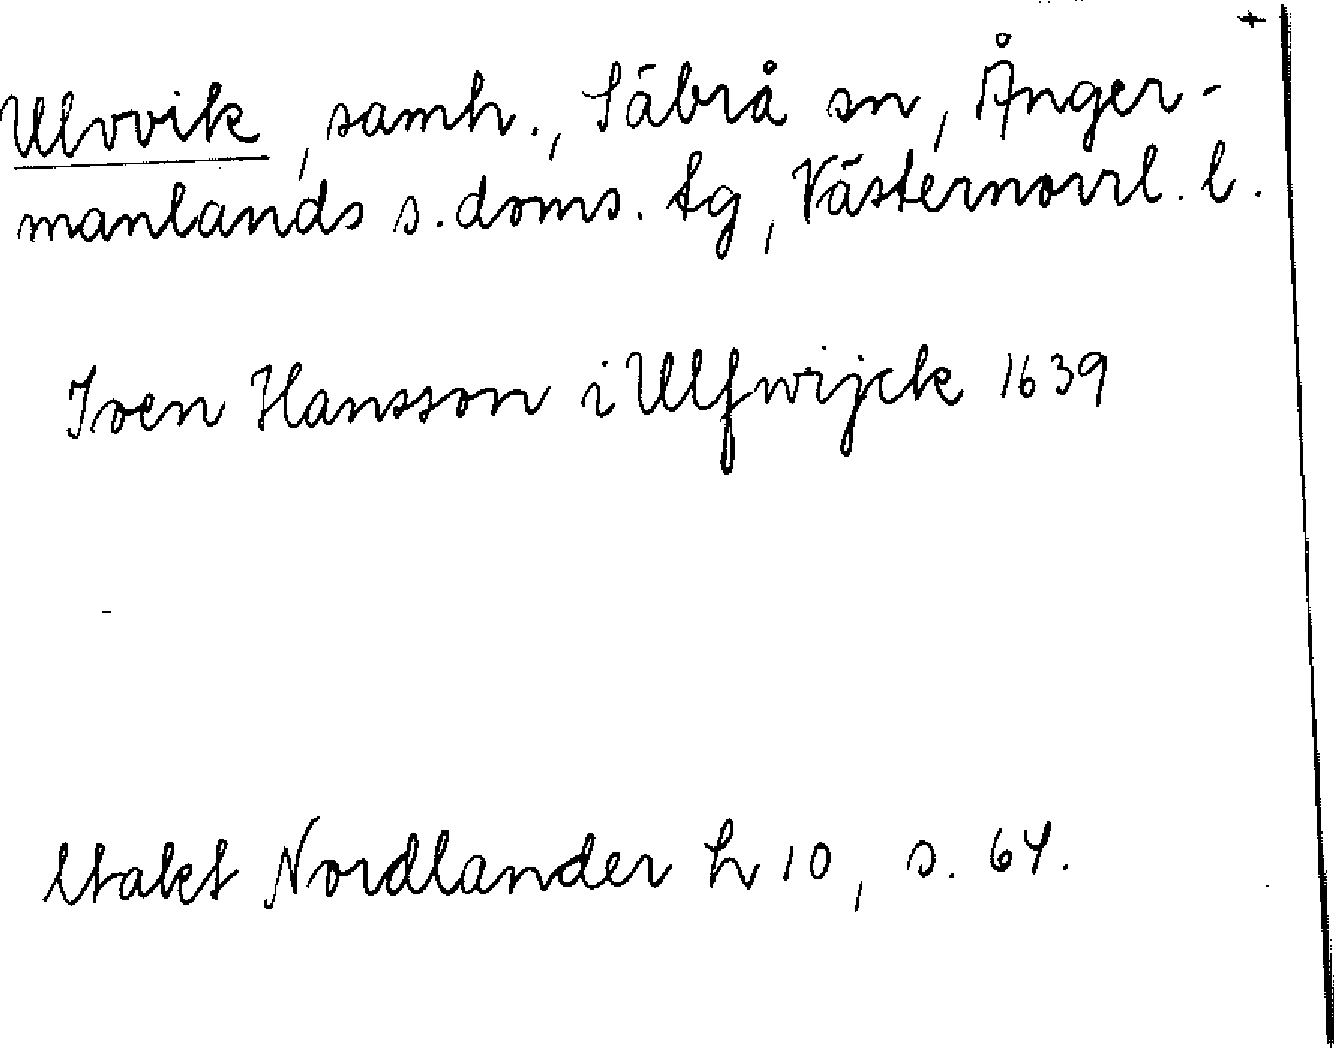 +
Ulvvik, samh., Säbrå sn, Ånger-
manlands s. doms. tg, Västernorrl. l.
Iven Hansson i Ulfwijck 1639
Utakt Nordlander h 10, s. 64.